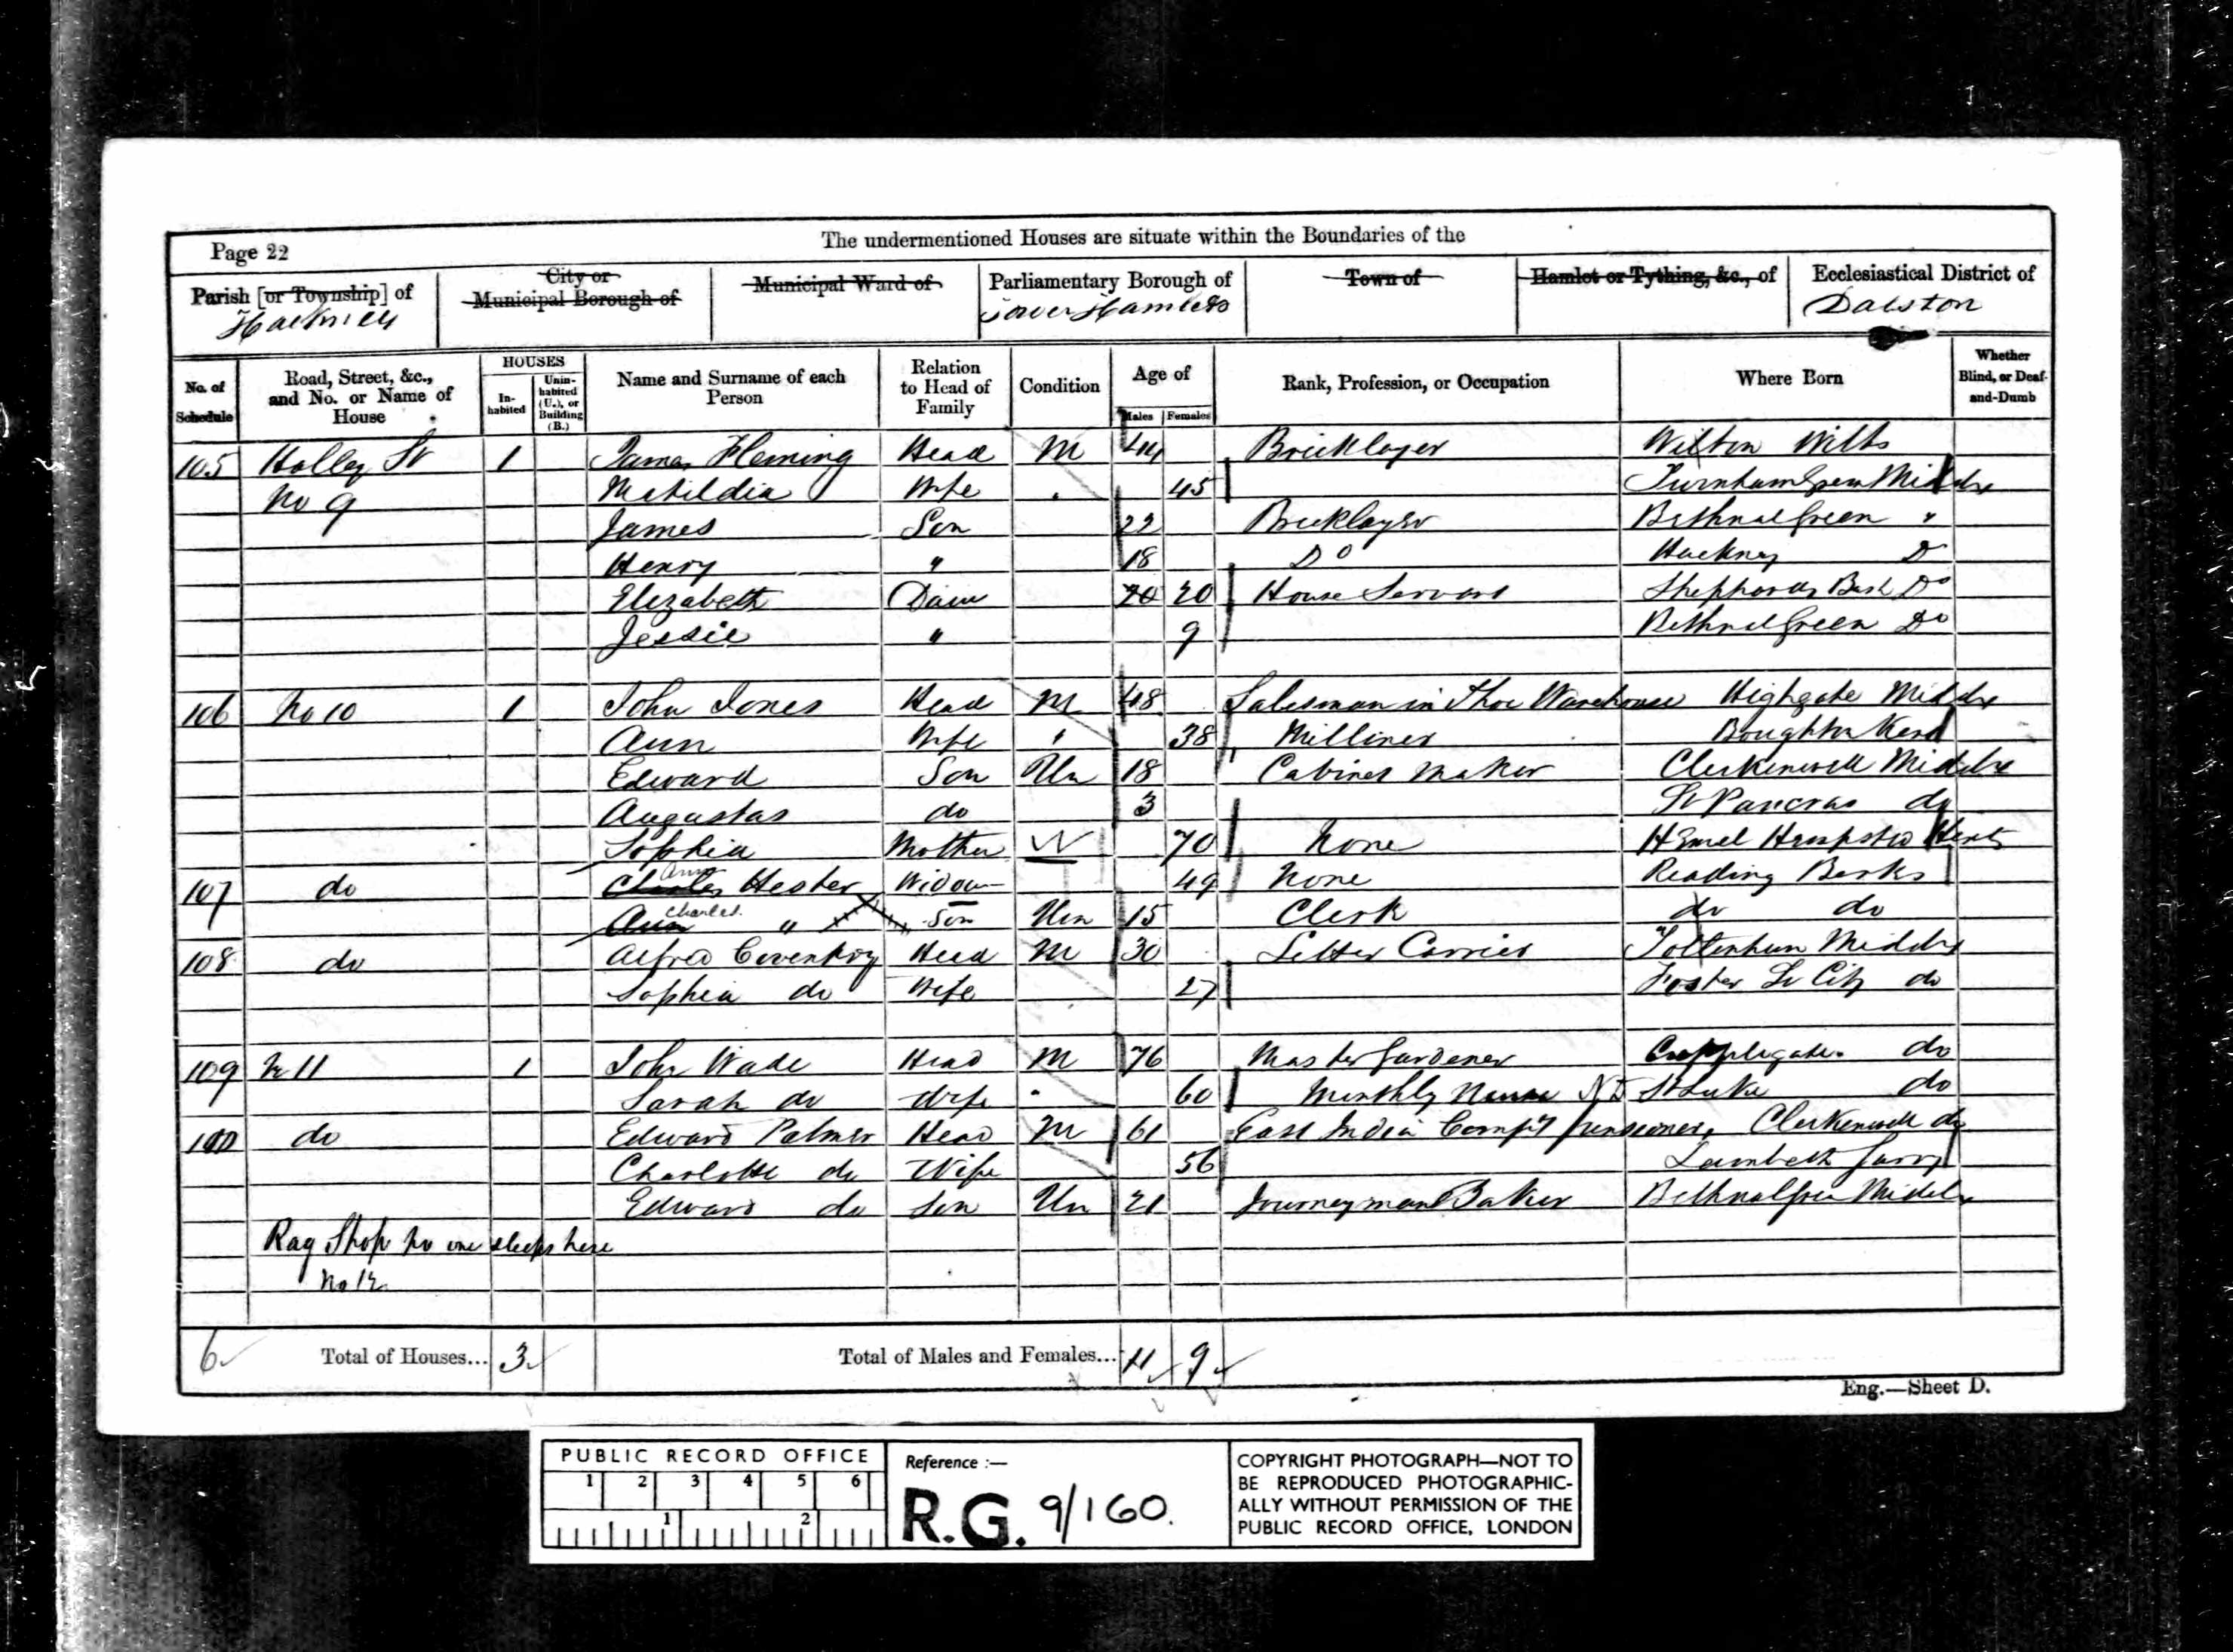 Page 22
The undermentioned Houses are situate within the Boundaries of the
Parish [or Township] of Hackney
City or Municipal Borough of
Municipal Ward of
Parliamentary Borough of Tower Hamlets
Town of
Hamlet or Tything, &c., of
Ecclesiastical District of Dalston
No. of Schedule
Road, Street, &c., and No. or Name of House
HOUSES
In-habited
Unin-habited (U.), or Building (B.)
Name and Surname of each Person
Relation to Head of Family
Condition
Age of
Males
Females
Rank, Profession, or Occupation
Where Born
Whether Blind, or Deaf-and-Dumb
105 Holley St 1 James Fleming Head M 44 Bricklayer Wilton Wilts
No 9 Matildia Wife 45 Turnham Green Middx
James Son 22 Bricklayer Bethnal Green "
Henry " 18 Do Hackney D
Elizabeth Daur 20 20 House Servant Shepherds Bush Do
Jessie " 9 Bethnal Green Do
106 No 10 1 John Jones Head M 48 Salesman in Shoe Warehouse Highgate Middx
Ann Wife " 38 Milliner Boughton Kent
Edward Son Un 18 Cabinet Maker Clerkenwell Middx
Augustas do 3 St Pancras do
Sophia Mother W 70 None Hemel Hempsted Herts
107 do Charles Ann Hester Widow 49 None Reading Berks
Ann Charles " Son Un 15 Clerk do do
108 do Alfred Coventry Head M 30 Letter Carrier Tottenham Middx
Sophia do Wife 27 Foster Ln City do
109 No 11 1 John Wade Head M 76 Master Gardener do
Sarah do Wife " 60 Monthly Nurse St Luke do
110 do Edward Palmer Head M 61 East India Compy Pensioner Clerkenwell do
Charlotte do Wife 56 Lambeth Surry
Edward do Son Un 21 Journeyman Baker Bethnal Green Middx
Rag Shop no one sleeps here
No 12
6 Total of Houses... 3 Total of Males and Females... 11 9
Eng.—Sheet D.
PUBLIC RECORD OFFICE
1 2 3 4 5 6
1 2
Reference :—
R.G. 9/160.
COPYRIGHT PHOTOGRAPH—NOT TO
BE REPRODUCED PHOTOGRAPHIC-
ALLY WITHOUT PERMISSION OF THE
PUBLIC RECORD OFFICE, LONDON